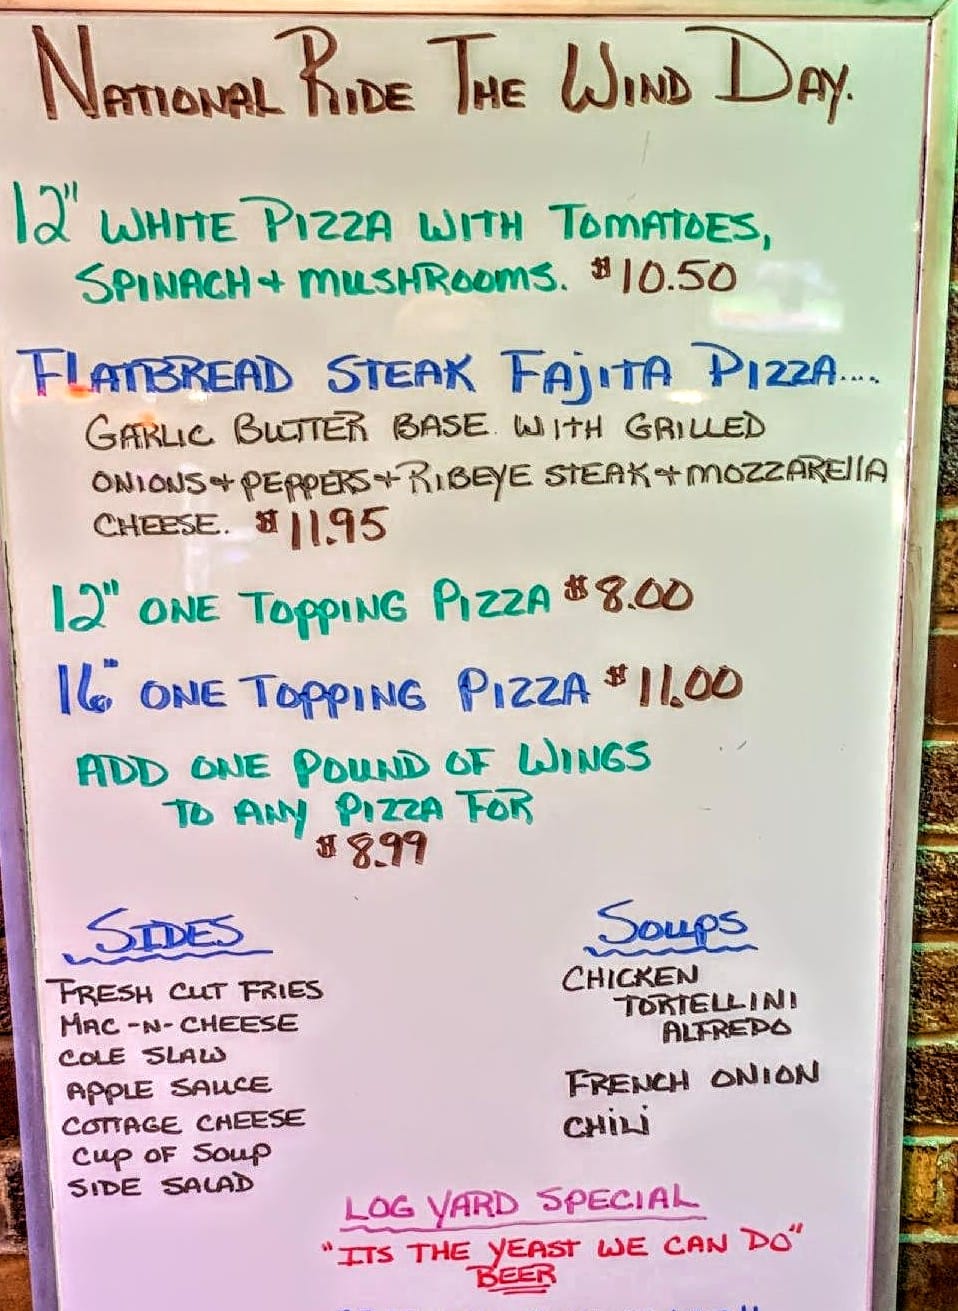 NATIONAL RIDE THE WIND DAY.
12" WHITE PIZZA WITH TOMATOES,
SPINACH + MUSHROOMS. $10.50
FLATBREAD STEAK FAJITA PIZZA....
GARLIC BUTTER BASE WITH GRILLED
ONIONS + PEPPERS + RIBEYE STEAK + MOZZARELLA
CHEESE. $11.95
12" ONE TOPPING PIZZA $8.00
16" ONE TOPPING PIZZA $11.00
ADD ONE POUND OF WINGS
TO ANY PIZZA FOR
$8.99
SIDES
FRESH CUT FRIES
MAC-N-CHEESE
COLE SLAW
APPLE SAUCE
COTTAGE CHEESE
CUP OF SOUP
SIDE SALAD
SOUPS
CHICKEN
TORTELLINI
ALFREDO
FRENCH ONION
CHILI
LOG YARD SPECIAL
"ITS THE YEAST WE CAN DO"
BEER